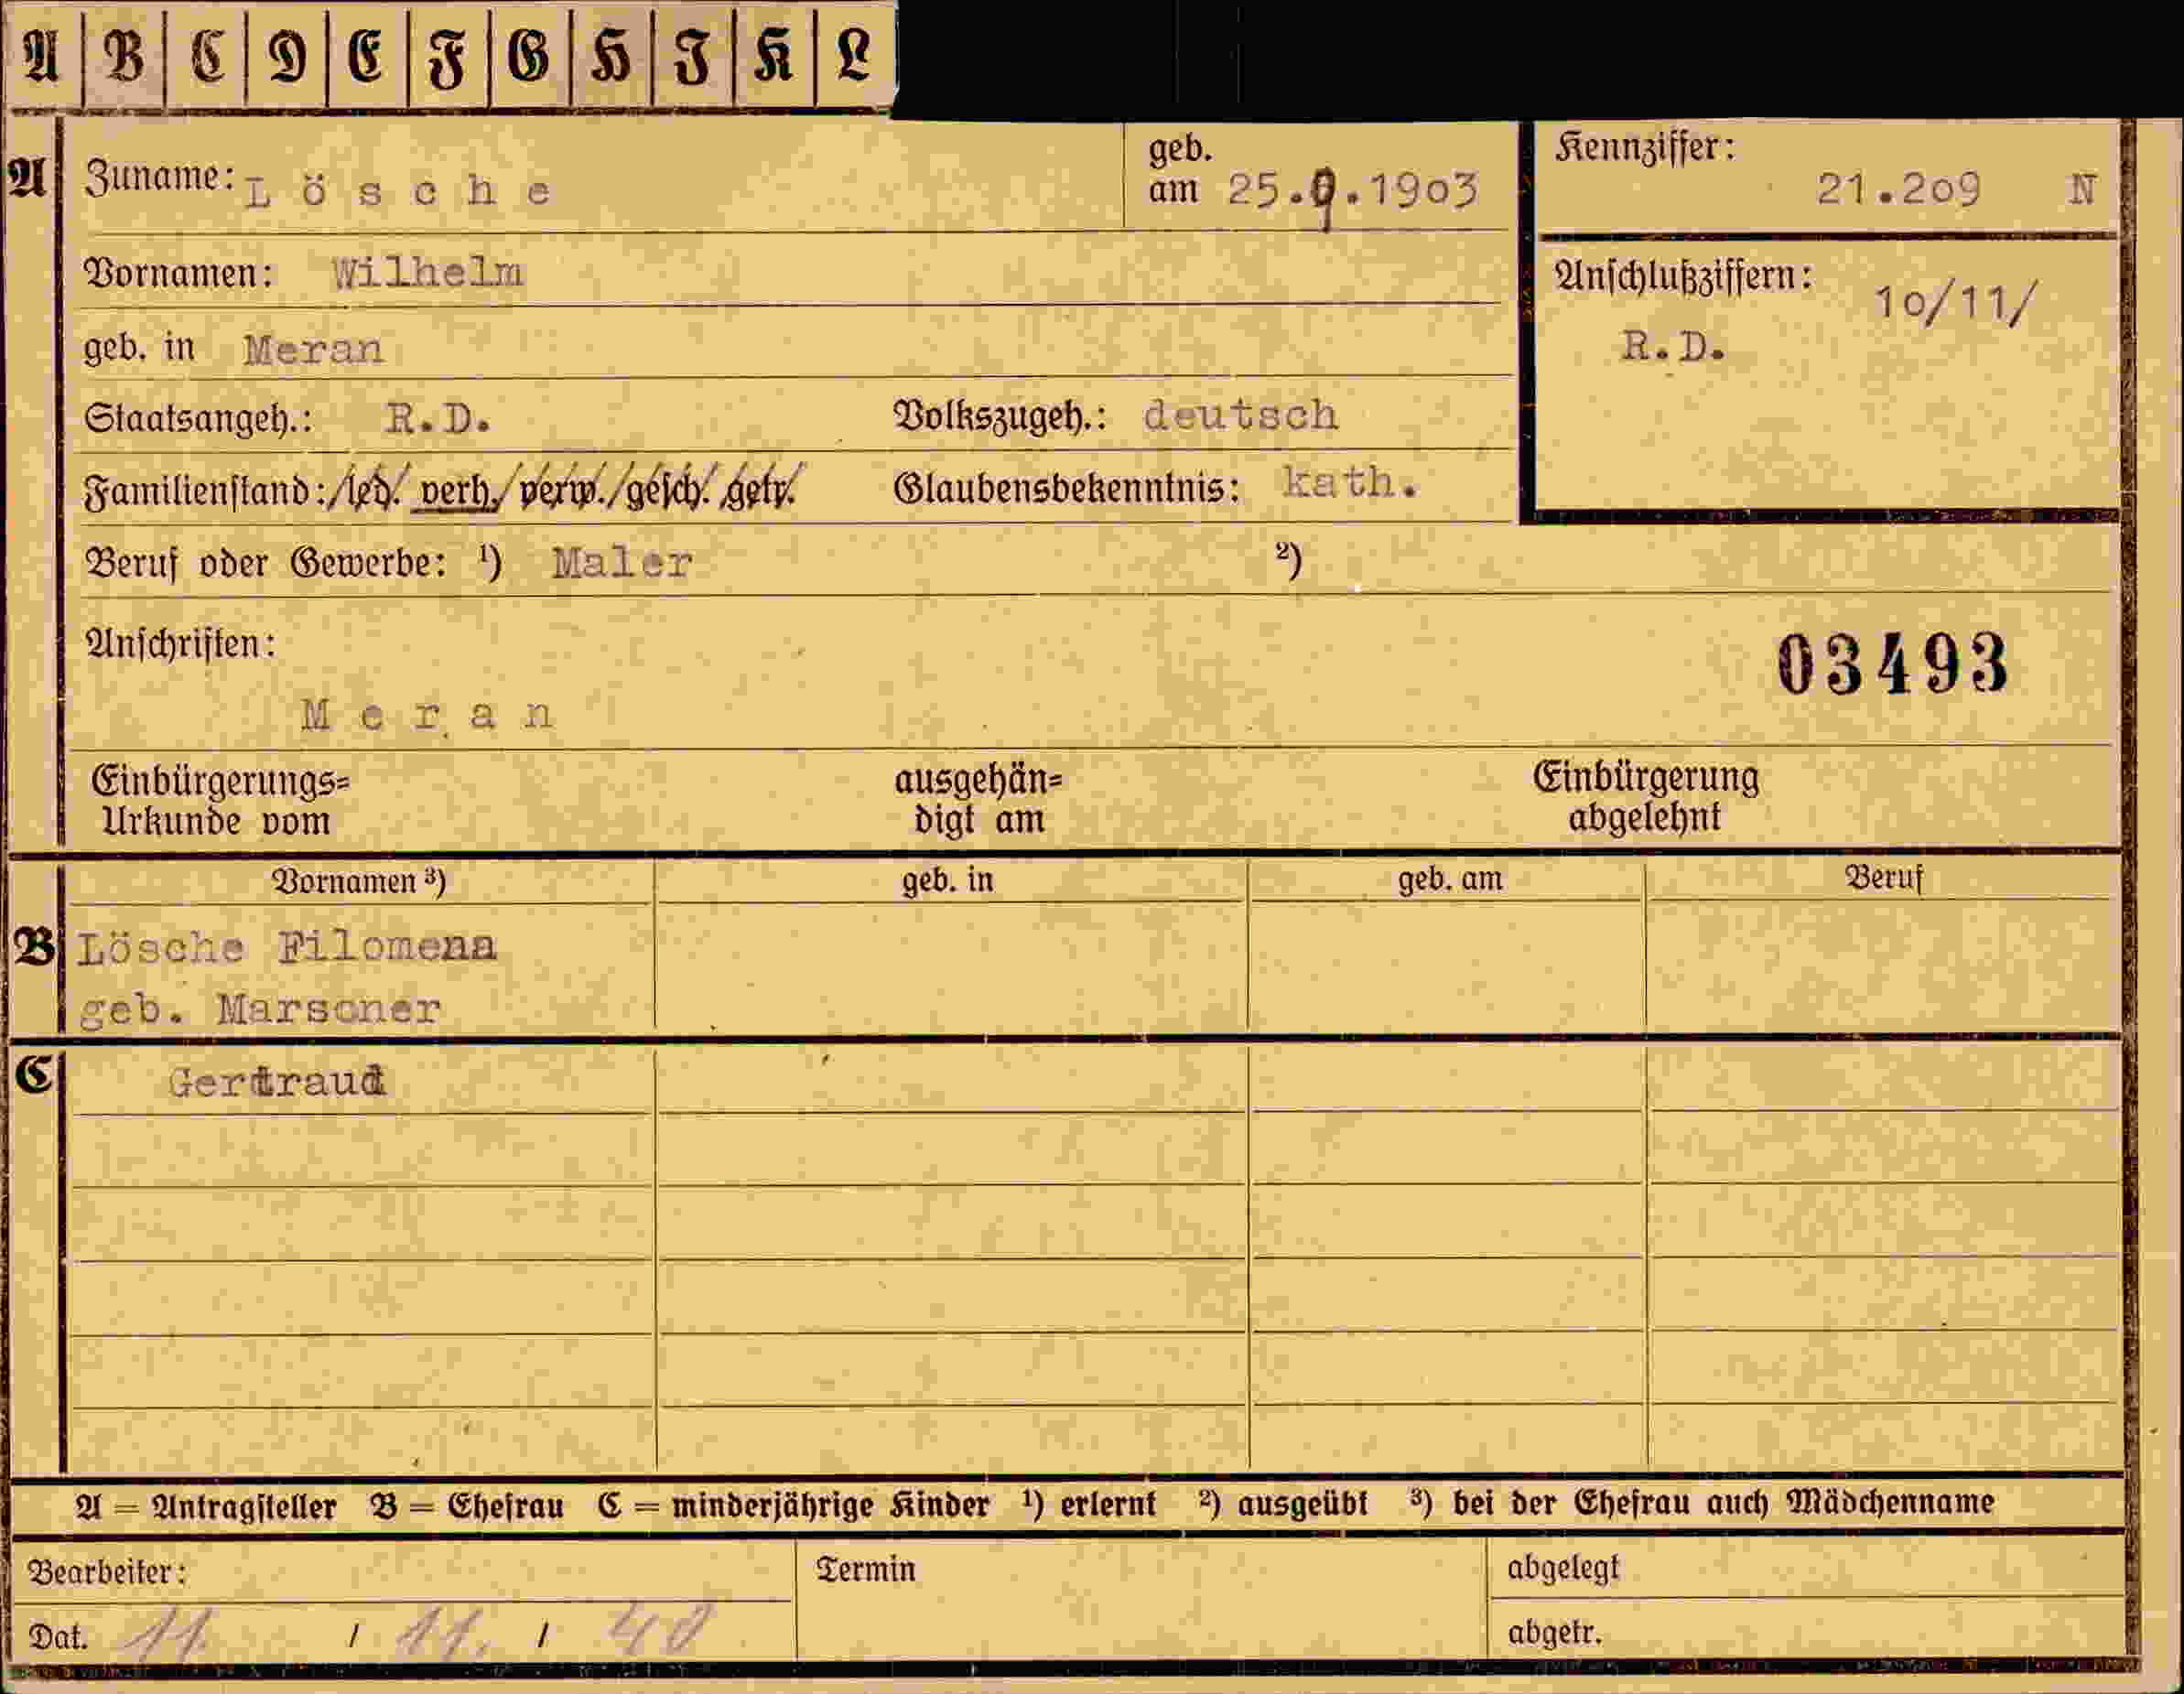 A B C D E F G H I K L
A Zuname: Lösche geb. am 25.9.1903 Kennziffer: 21.209 N
Vornamen: Wilhelm Anschlußziffern: 10/11/
geb. in Meran R.D.
Staatsangeh.: R.D. Volkszugeh.: deutsch
Familienstand: led. verh. verw. gesch. getr. Glaubensbekenntnis: kath.
Beruf oder Gewerbe: ¹) Maler ²)
Anschriften: 03493
Meran
Einbürgerungs= ausgehän= Einbürgerung
Urkunde vom digt am abgelehnt
Vornamen ³) geb. in geb. am Beruf
B Lösche Filomena
geb. Marsoner
C Gertraud
A = Antragsteller B = Ehefrau C = minderjährige Kinder ¹) erlernt ²) ausgeübt ³) bei der Ehefrau auch Mädchenname
Bearbeiter: Termin abgelegt
Dat. 11. / 11. / 40 abgetr.